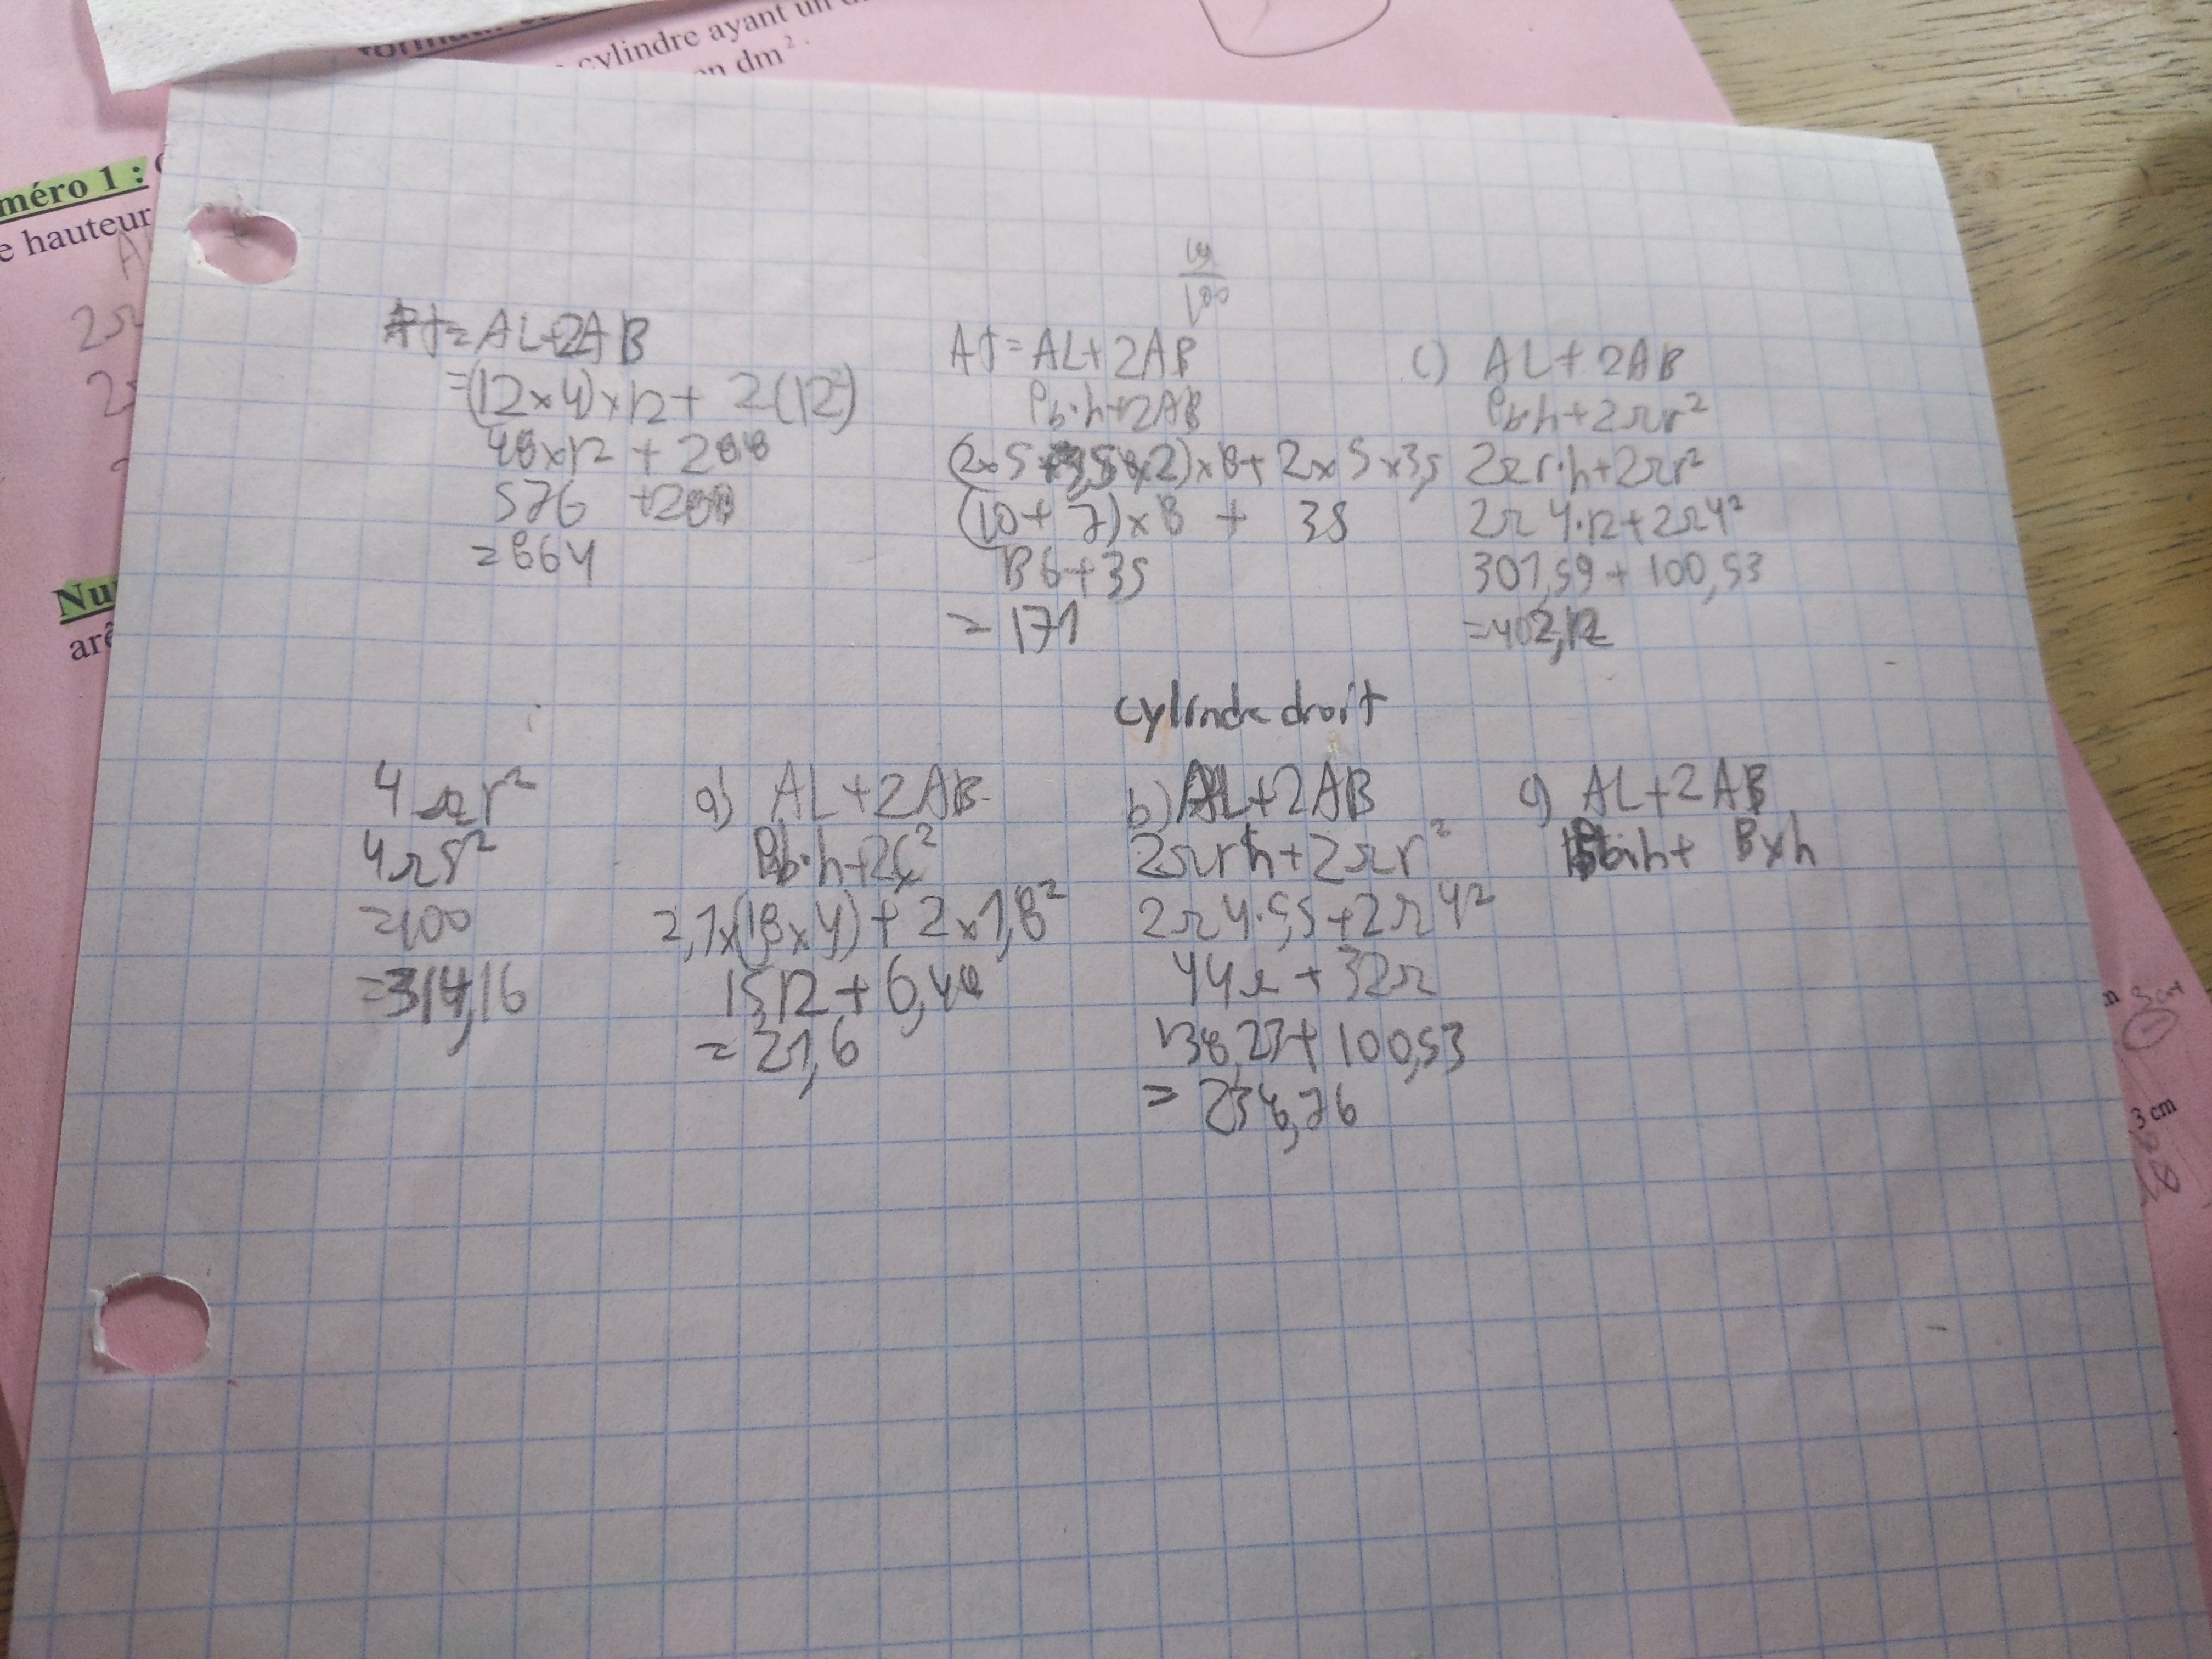 cylindre ayant un
en dm².
méro 1 :
e hauteur
Nu
arê
100
At = AL+2AB
=(12×4)×12+ 2(12²)
48×12 + 288
576 +288
=864
At = AL+2AB
Pb·h+2AB
(2×5+3,5×2)×8+2×5×3,5
(10+7)×8 + 35
136+35
= 171
c) AL+2AB
Pb·h+2πr²
2πr·h+2πr²
2π4·12+2π4²
301,59+100,53
=402,12
cylindre droit
4πr²
4π5²
=100
=314,16
a) AL+2AB
Pb·h+2c²
2,1×(1,8×4)+2×1,8²
15,12+6,48
=21,6
b) AL+2AB
2πrh+2πr²
2π4·5,5+2π4²
44π+32π
138,23+100,53
= 238,76
c) AL+2AB
Pb·h+ B×h
3 cm